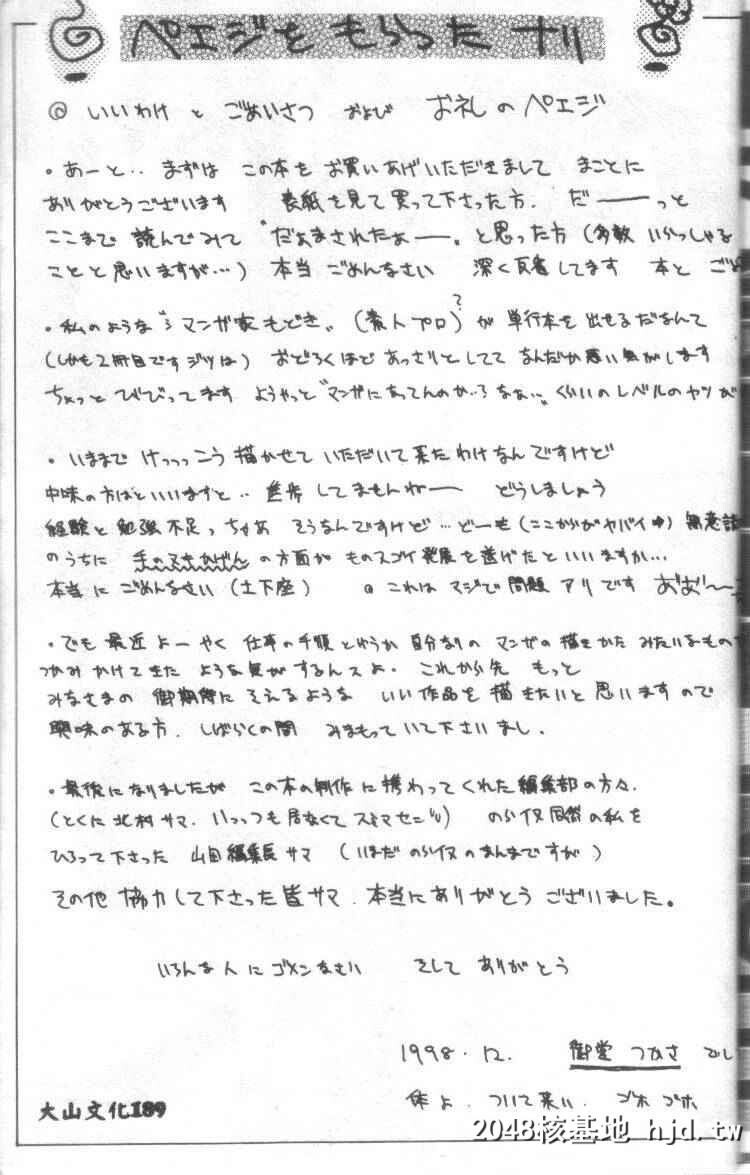 ペエジをもらったナリ
@ いいわけ と ごあいさつ および お礼のペエジ
・あーと‥ まずは この本を お買いあげいただきまして まことに
ありがとうございます 表紙を見て買って下さった方. だ――っと
ここまで 読んでみて "だぁまされたぁ――。と思った方(多数 いらっしゃる
ことと思いますが…) 本当 ごめんなさい 深く反省してます 本と ごめ
・私のような "マンガ家もどき。(素人プロ)?が 単行本を出せるだなんて
(しかも2冊目です ジツは) おどろくほど あっさりとしてて なんだか悪い気がします
ちょっと びびってます ようやっと "マンガになってんのか‥なぁ…。くらいのレベルのヤツが
・いままで けっっっこう 描かせて いただいて来たわけなんですけど
中味の方はといいますと‥ 進歩してませんねー どうしましょう
経験と勉強不足っちゃあ そうなんですけど…どーも(ここからがヤバイゆ) 無意識
のうちに 手のヌキかげん の方面が ものスゴイ発展を遂げたといいますか…
本当に ごめんなさい(土下座) @ これは マジで問題 アリです おぉ〜
・でも 最近よーやく 仕事の手順というか 自分なりの マンガの描きかた みたいなもの
つかみ かけてきた ような気がするんスよ. これから先 もっと
みなさまの 御期待に そえるような いい作品を 描きたいと思いますので
興味のある方. しばらくの間 みまもっていて下さいまし.
・最後になりましたが この本の制作に携わってくれた編集部の方々.
(とくに北村サマ. いっっつも居なくてスミマセン) のらイヌ同然の私を
ひろって下さった 山田編集長サマ (いまだ のらイヌのまんまですが)
その他 協力して下さった皆サマ. 本当にありがとうございました。
いろんな人にゴメンなさい そして ありがとう
1998.12. 御堂 つかさ でし
体よ. ついて来い. ゴホ ゴホ
大山文化189
2048核基地 hjd.tw